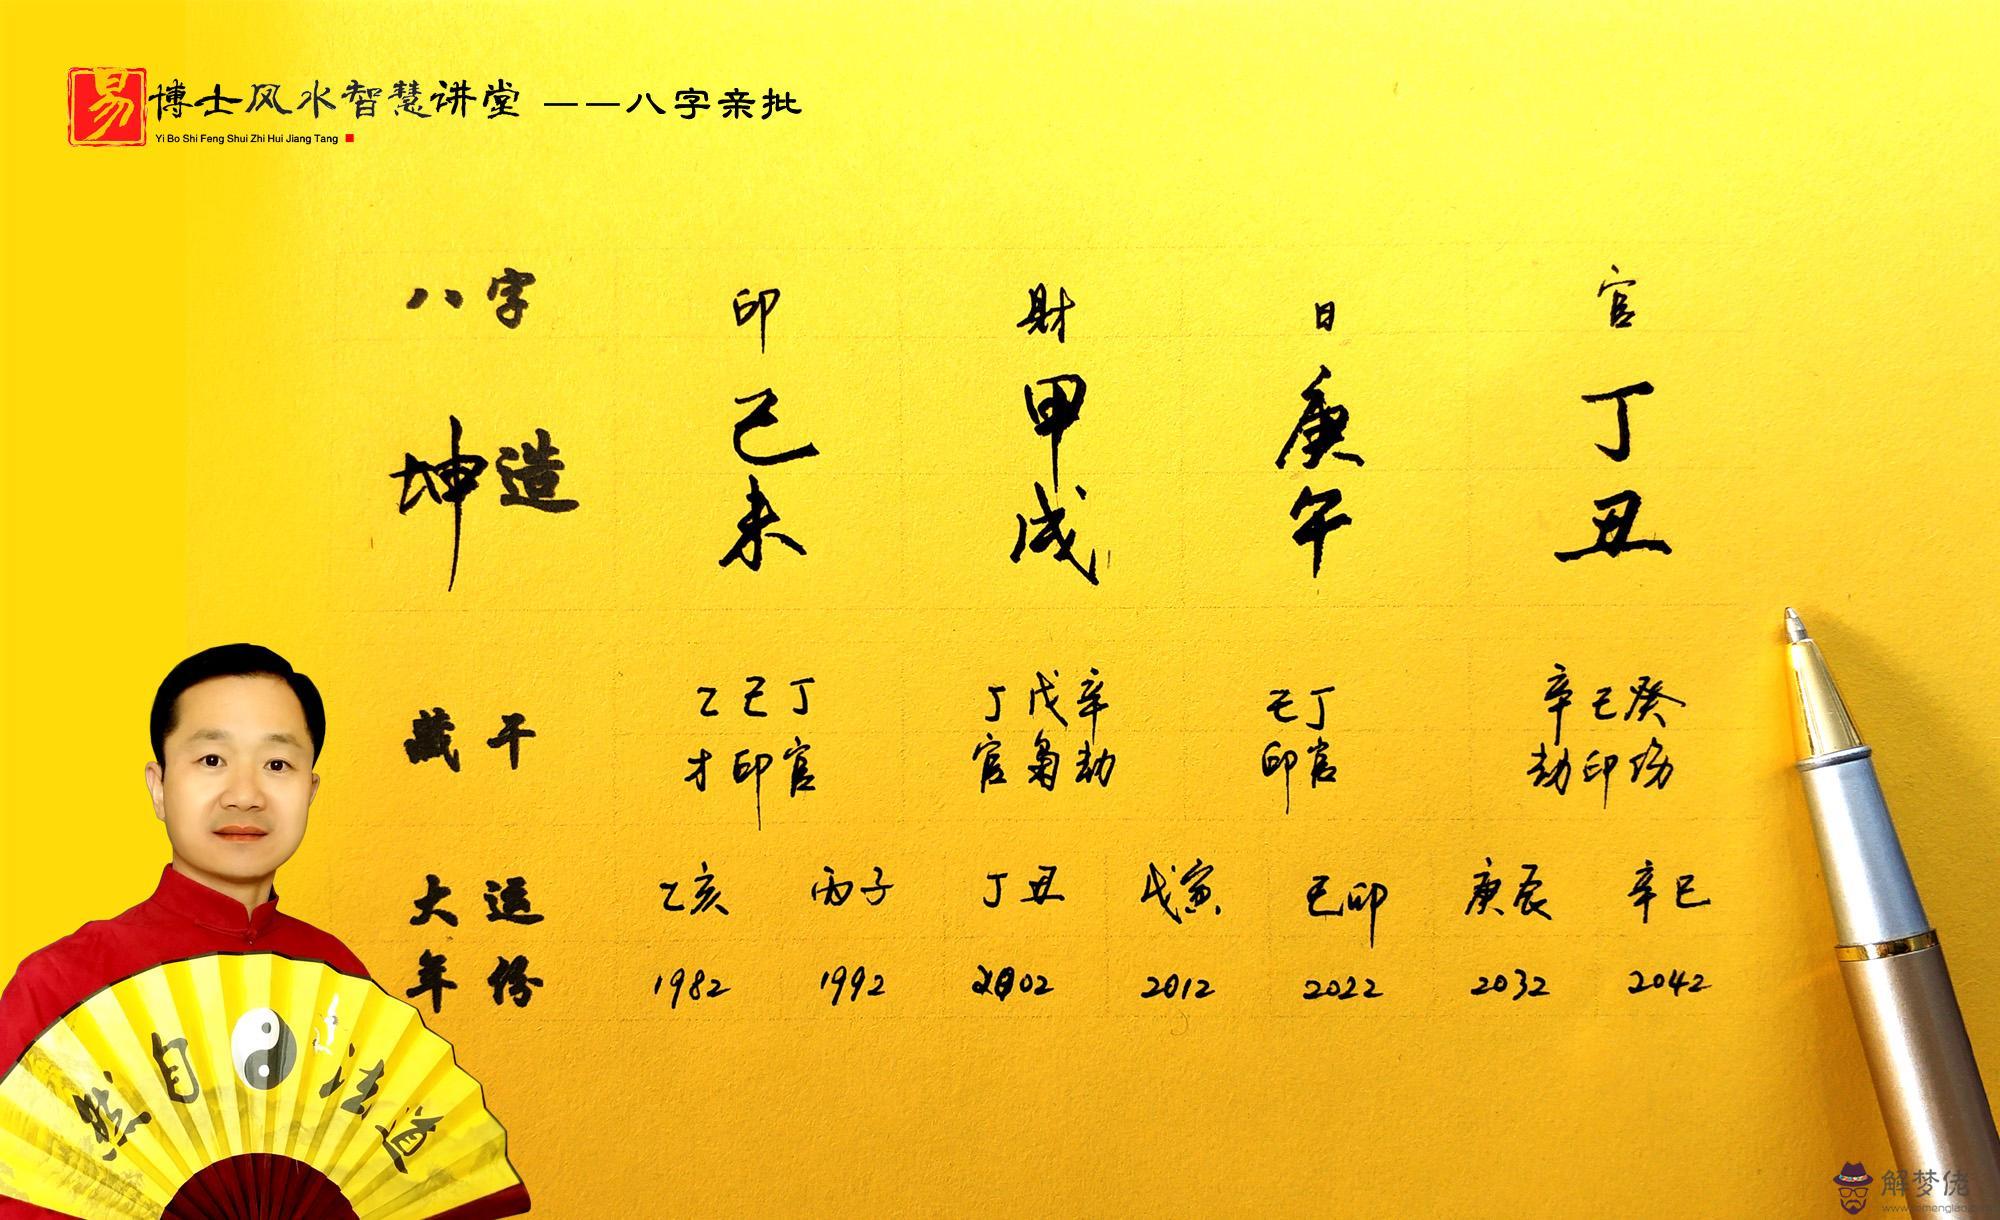 易 博士风水智慧讲堂 ——八字亲批
Yi Bo Shi Feng Shui Zhi Hui Jiang Tang
八字 印 财 日 官
坤造 己 甲 庚 丁
未 戌 午 丑
藏干 乙己丁 丁戊辛 己丁 辛己癸
才印官 官枭劫 印官 劫印伤
大运 乙亥 丙子 丁丑 戊寅 己卯 庚辰 辛巳
年份 1982 1992 2002 2012 2022 2032 2042
然自法道
解梦佬